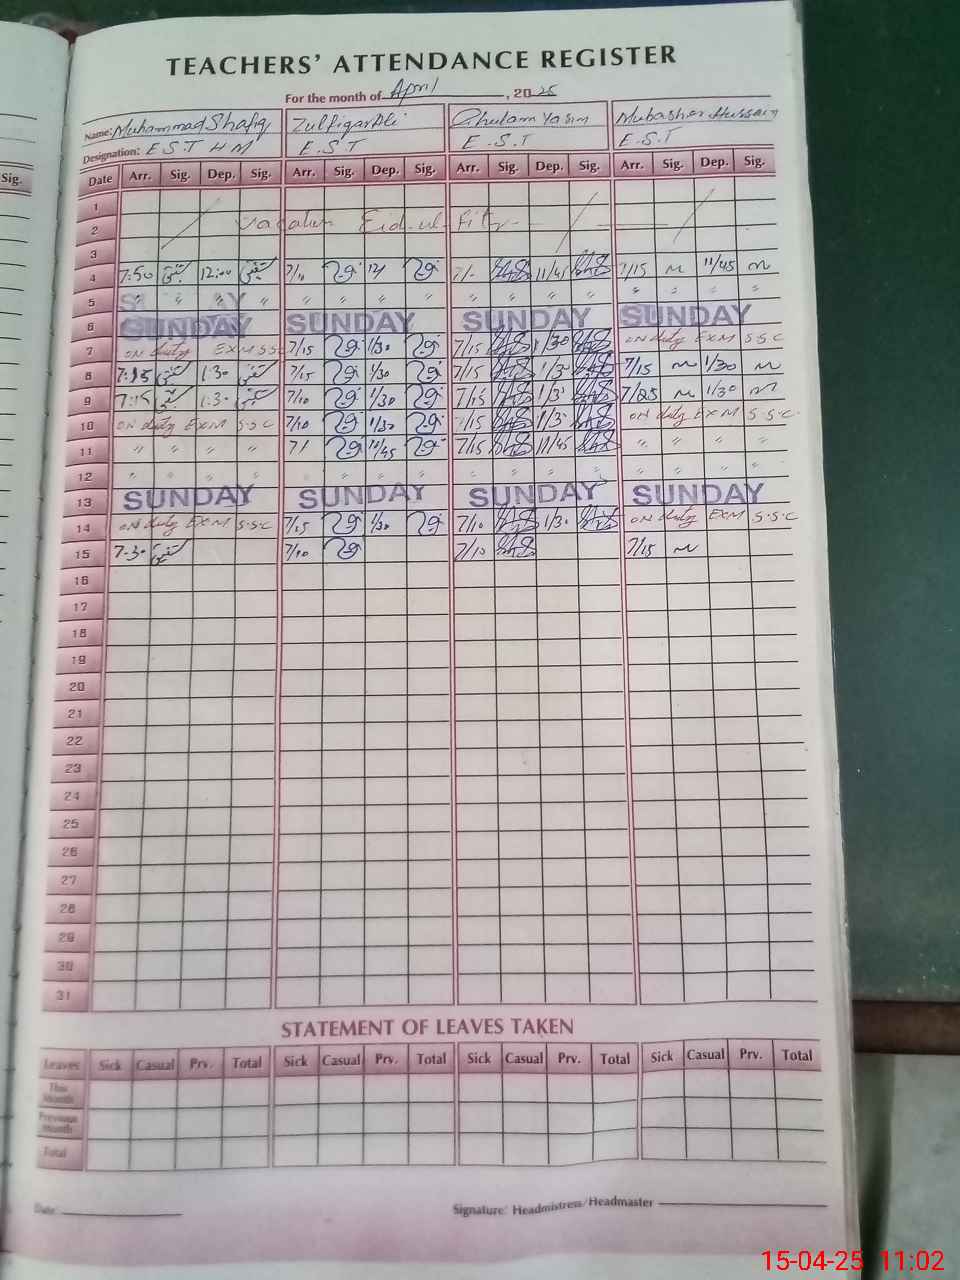 TEACHERS' ATTENDANCE REGISTER
For the month of April, 2025
Name: Muhammad Shafiq Zulfiqar Ali Ghulam Yasin Mubasher Hussain
Designation: E S T H M E.S.T E.S.T E.S.T
Sig. Date Arr. Sig. Dep. Sig. Arr. Sig. Dep. Sig. Arr. Sig. Dep. Sig. Arr. Sig. Dep. Sig.
1
2 Vacation Eid-ul-Fitr
3
4 7:50 12:00 7/10 12/ 7/- 11/45 7/15 11/45
5 " " " " " " " " " " " " " " "
6 SUNDAY SUNDAY SUNDAY SUNDAY
7 ON duty EXM SSC 7/15 1/30 7/15 1/30 ON duty EXM S.S.C
8 7:15 1:30 7/15 1/30 7/15 1/3 7/15 1/30
9 7:15 1:30 7/10 1/30 7/15 1/3 7/25 1/30
10 ON duty EXM S.S.C 7/10 1/30 7/15 1/3 ON duty EXM S.S.C
11 " " " " 7/ 11/45 7/15 11/45 " " " "
12 " " " " " " " " " " " " " " " "
13 SUNDAY SUNDAY SUNDAY SUNDAY
14 ON duty EXM S.S.C 7/15 1/30 7/10 1/30 ON duty EXM S.S.C
15 7:30 7/10 7/10 7/15
16
17
18
19
20
21
22
23
24
25
26
27
28
29
30
31
STATEMENT OF LEAVES TAKEN
Leaves Sick Casual Prv. Total Sick Casual Prv. Total Sick Casual Prv. Total Sick Casual Prv. Total
This Month
Previous Month
Total
Date: Signature: Headmistress/Headmaster
15-04-25 11:02